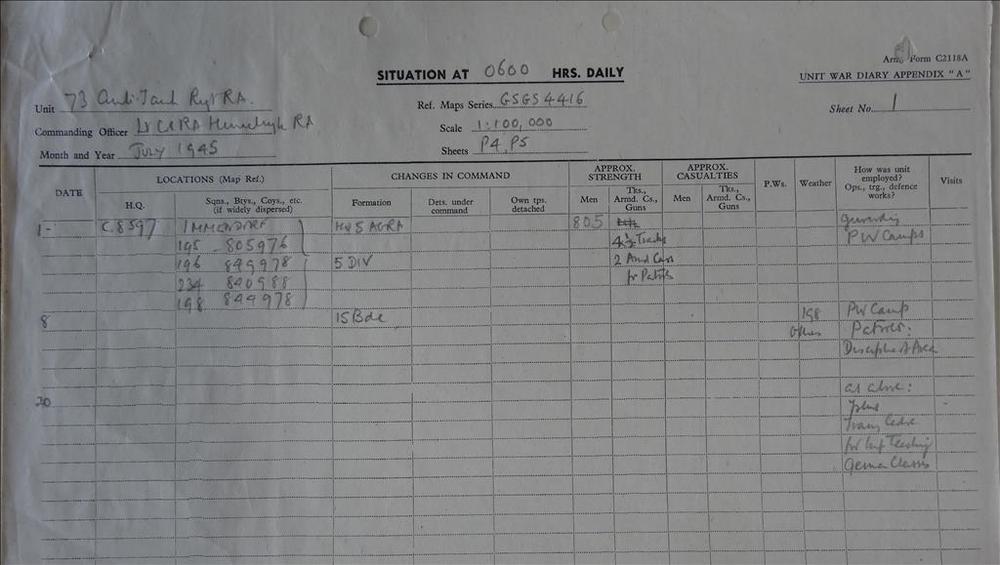 Army Form C2118A
SITUATION AT 0600 HRS. DAILY
UNIT WAR DIARY APPENDIX "A"
Unit 73 Anti-Tank Regt RA.
Ref. Maps Series GSGS 4416
Sheet No. 1
Commanding Officer Lt Col RA RA
Scale 1:100,000
Month and Year July 1945
Sheets P4, P5
DATE
LOCATIONS (Map Ref.)
H.Q.
Sqns., Btys., Coys., etc. (if widely dispersed)
CHANGES IN COMMAND
Formation
Dets. under command
Own tps. detached
APPROX. STRENGTH
Men
Tks., Armd. Cs., Guns
APPROX. CASUALTIES
Men
Tks., Armd. Cs., Guns
P.Ws.
Weather
How was unit employed? Ops., trg., defence works?
Visits
1- C.8597 IMMENDORF HQ 5 AGRA 805 Guarding
195 805976 PW Camps
196 849978 5 DIV 2 Armd Cars
234 840988 for Patrols
198 844978
8 15 Bde 198 PW Camp
Others Patrols:
Discipline of Area
20 as above:
plus
Training Cadre
for Teaching
German Classes